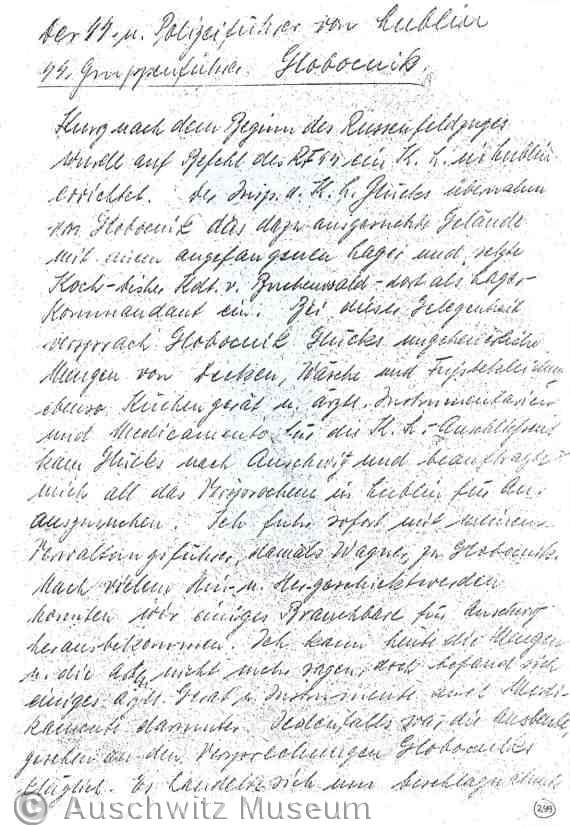 Der SS- u. Polizeiführer von Lublin
SS. Gruppenführer Globocnik.
Kurz nach dem Beginn des Russenfeldzuges
wurde auf Befehl des RFSS ein K. L. in Lublin
errichtet. Der Insp. d. K. L. Glücks übernahm
von Globocnik das dazu ausgesuchte Gelände
mit einem angefangenen Lager und setzte
Koch - bisher Kdt. v. Buchenwald - dort als Lager-
kommandant ein. Bei dieser Gelegenheit
versprach Globocnik Glücks ungeheuerliche
Mengen von Decken, Wäsche und
ebenso Küchengerät u. ärztl. Instrumentarien
und Medicamente für die K. L. - Anschließend
kam Glücks nach Auschwitz und beauftragte
mich all das Versprochene in Lublin für Au.
auszusuchen. Ich fuhr sofort mit meinem
Verwaltungsführer, damals Wagner, zu Globocnik.
Nach vielem Hin- u. Hergeschicktwerden
konnten wir einiges Brauchbare für Auschwitz
herausbekommen. Ich kann heute die Mengen
u. die Art nicht mehr sagen, doch befand sich
einiges ärztl. Gerät u. Instrumente und Medi-
kamente darunter. Jedenfalls war die Ausbeute,
gesehen an den Versprechungen Globocniks
kläglich. Es handelte sich um beschlagnahmte
249
© Auschwitz Museum